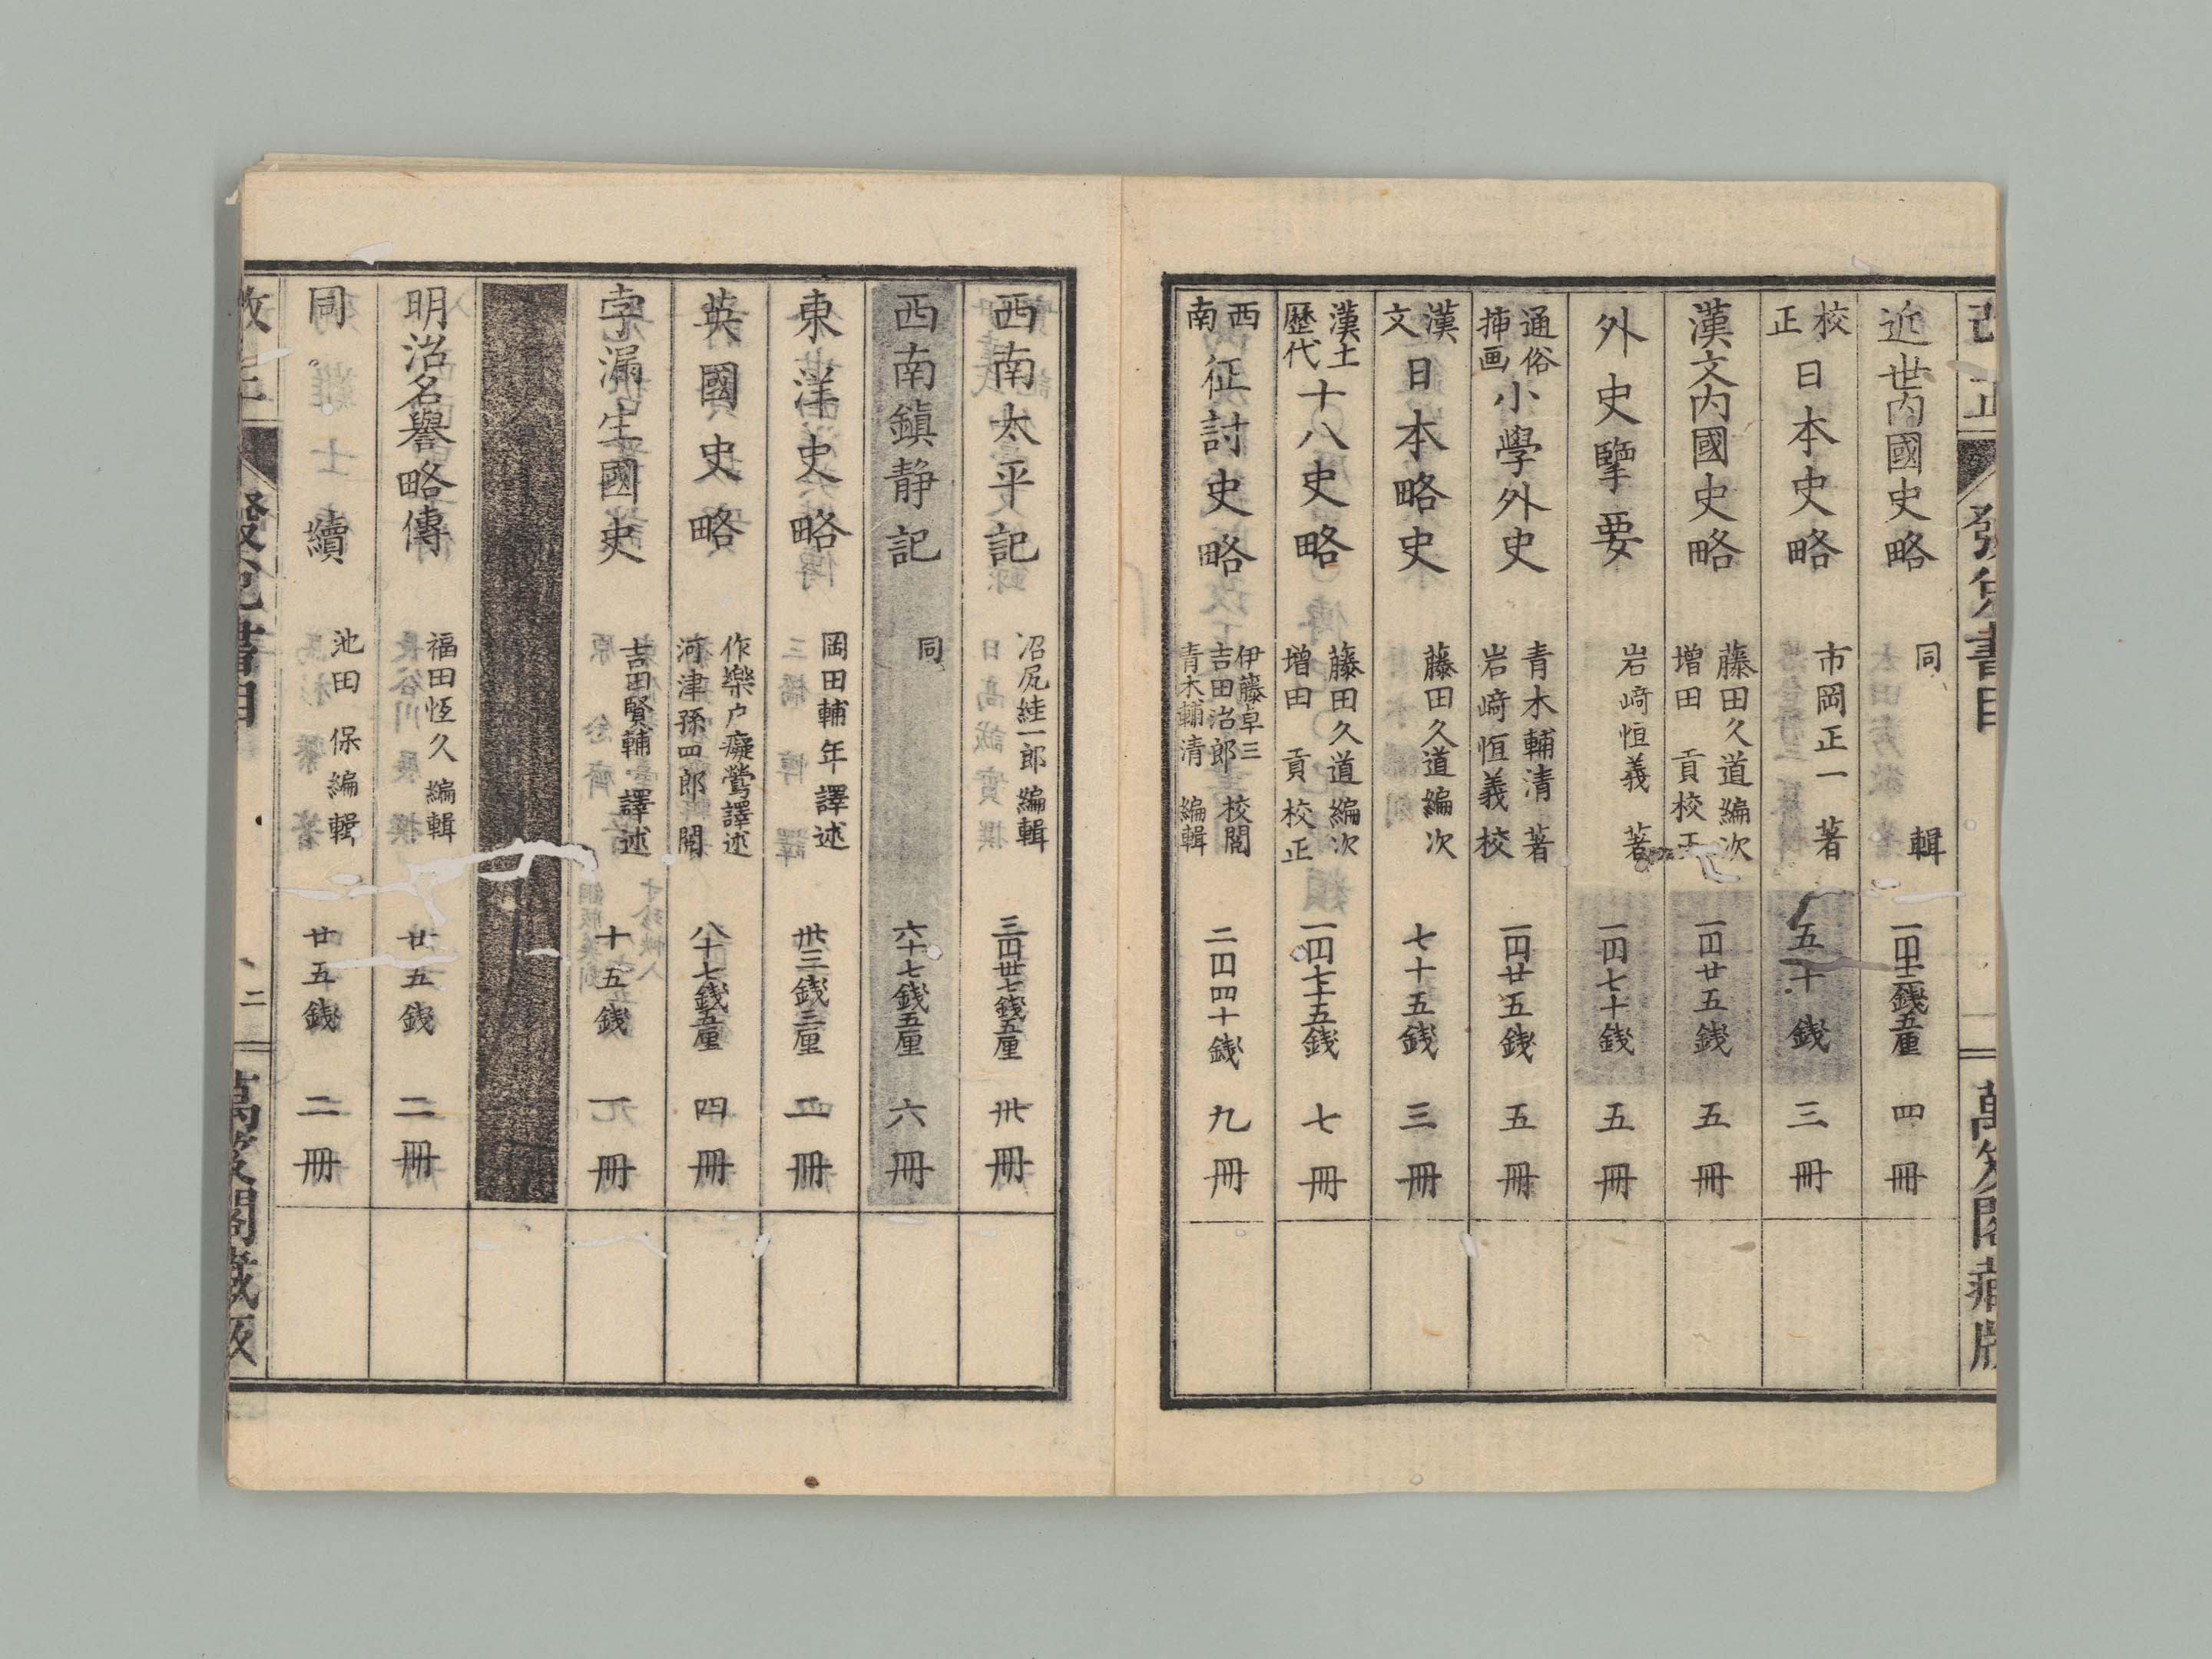 改正 發兌書目 萬笈閣藏版
近世内國史略 同 輯 一円十二銭五厘 四冊
校正 日本史略 市岡正一 著 五十銭 三冊
漢文内國史略 藤田久道編次 増田 貢校正 一円廿五銭 五冊
外史擥要 岩﨑恒義 著 一円七十銭 五冊
通俗挿画 小學外史 青木輔清 著 岩﨑恒義 校 一円廿五銭 五冊
漢文 日本略史 藤田久道編次 七十五銭 三冊
漢土歴代 十八史略 藤田久道編次 増田 貢 校正 一円七十五銭 七冊
西南 征討史略 伊藤卓三 吉田治郎 校閲 青木輔清 編輯 二円四十銭 九冊
西南太平記 沼尻絓一郎 編輯 三円卅七銭五厘 卅冊
西南鎮静記 同 六十七銭五厘 六冊
東洋史略 岡田輔年譯述 卅三銭三厘 二冊
英國史略 作樂戸癡鶯譯述 河津孫四郎 閲 八十七銭五厘 四冊
孛漏生國史 吉田賢輔 譯述 十五銭 一冊
明治名譽略傳 福田恆久 編輯 廿五銭 二冊
同 續 池田 保編輯 廿五銭 二冊
改正 發兌書目 二 萬笈閣藏版